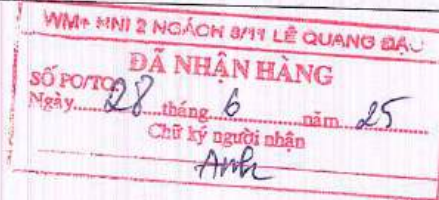 WM+ HNI 2 NGÁCH 8/11 LÊ QUANG ĐẠO
ĐÃ NHẬN HÀNG
SỐ PO/TO
Ngày 28 tháng 6 năm 25
Chữ ký người nhận
Anh